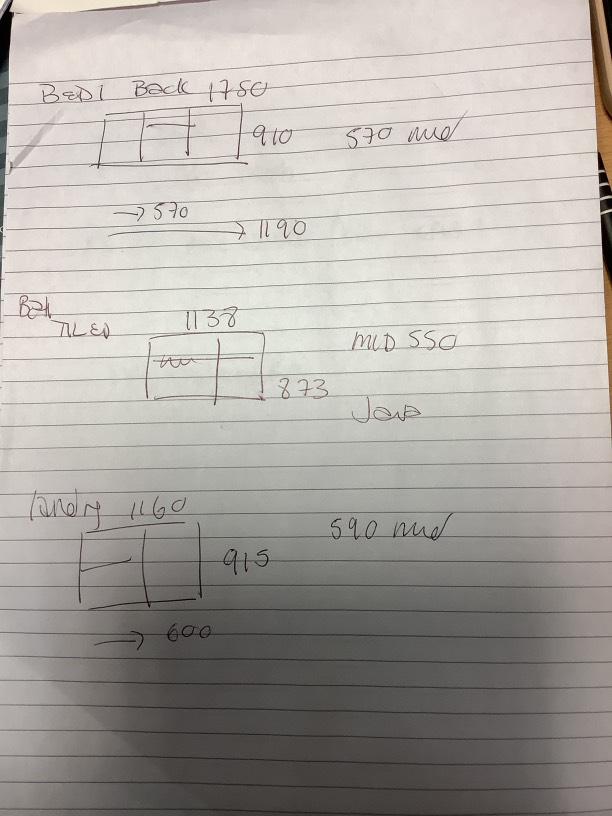 BED1 Back 1750
910 570 mid
→ 570
→ 1190
Bath
TILED 1138
MID 550
873
landry 1160
590 mid
915
→ 600